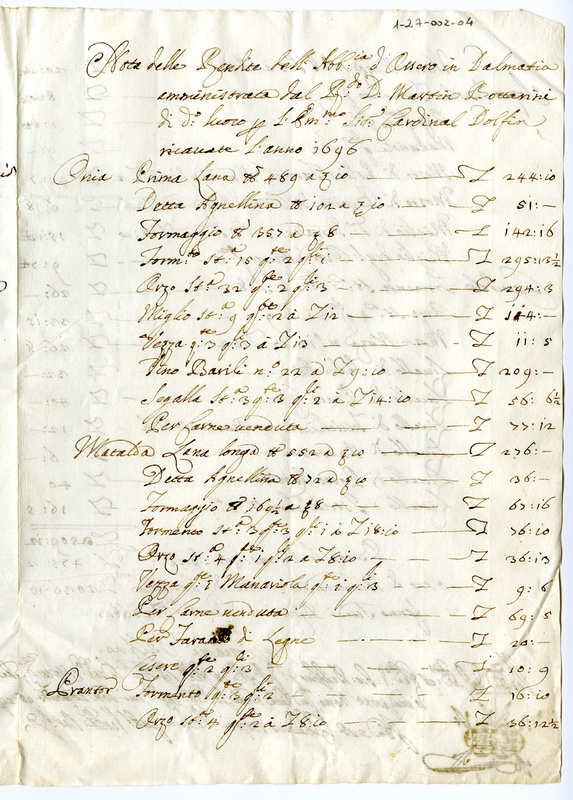 1-27-002-04
Nota delle Rendite dell' Abb:ia d' Ossero in Dalmatia
amministrata dal R:do D: Martin Bottarini
di d:o luoco p l' Em:mo Sig:r Cardinal Dolfin
ricavate l' anno 1696
Prima Lana 489 a 10 — L 244:10
Detta Agnellina 102 a 10 — L 51:—
Formaggio 357 a 8 — L 142:16
Form:to St:a 15 q:te 2 q:li 1 — L 295:13½
Orzo St:a 32 q:te 2 q:li 3 — L 294:3
Miglio St:a 9 q:te 2 à L 12 — L 114:—
Vezza q:te 3 q:li 3 à L 13 — L 11:5
Vino Barili n:o 22 à L 9:10 — L 209:—
Segalla St:a 3 q:te 3 q:li 2 à L 14:10 — L 56:6½
Per Carne venduta — L 77:12
Lana longa 552 a 10 — L 276:—
Detta Agnellina 72 a 10 — L 36:—
Formaggio 169½ a 8 — L 67:16
Formento St:a 3 q:te 3 q:li 1 à L 18:10 — L 76:10
Orzo St:a 4 q:te 1 q:li 2 a L 8:10 — L 36:13
Vezza q:te 1 q:te 1 q:li 3 — L 9:6
Per Carne venduta — L 69:5
Per di Legne — L 20:—
q:te 2 q:li 3 — L 10:9
Formento q:te 3 q:li 2 — L 16:10
Orzo St:a 4 q:te 2 à L 8:10 — L 36:12½